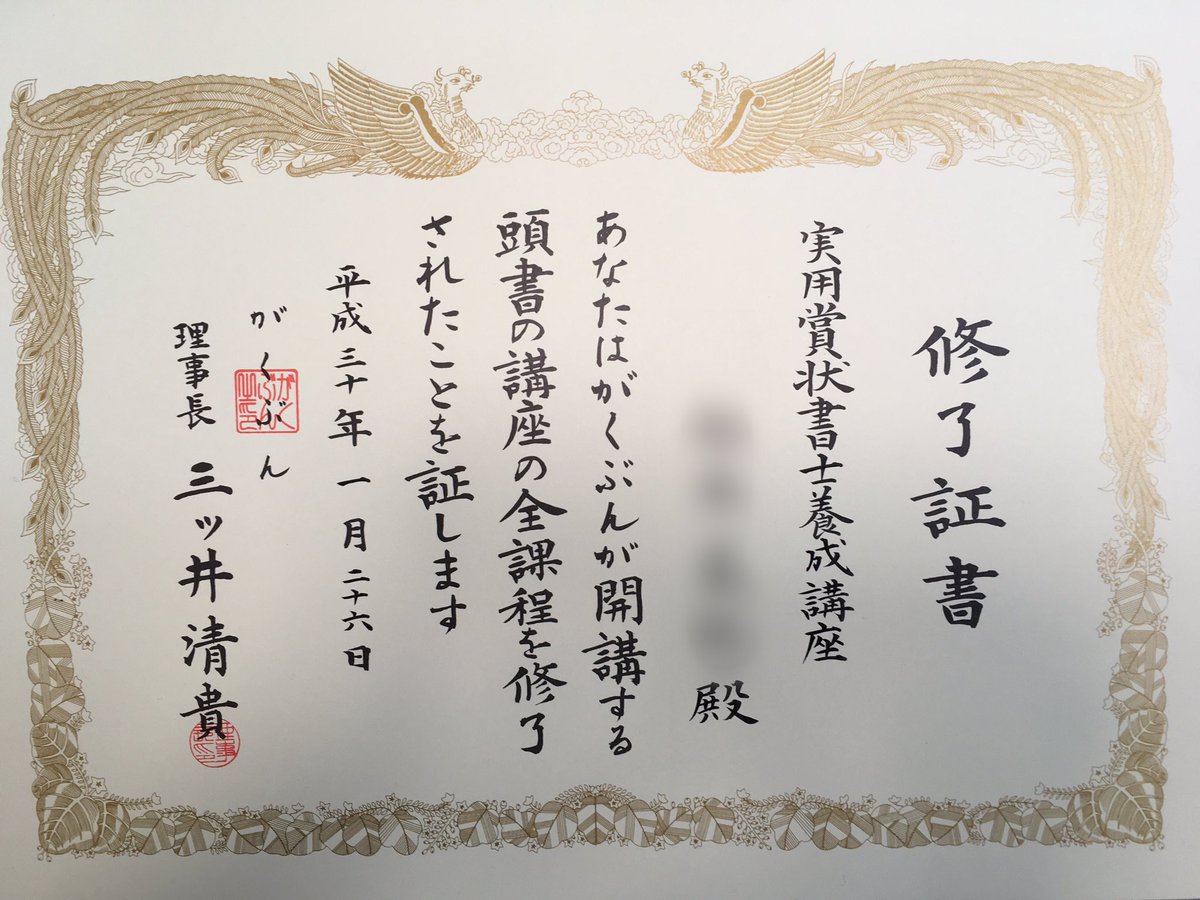 修了証書
実用賞状書士養成講座
殿
あなたはがくぶんが開講する
頭書の講座の全課程を修了
されたことを証します
平成三十年一月二十六日
がくぶん
理事長 三ッ井清貴